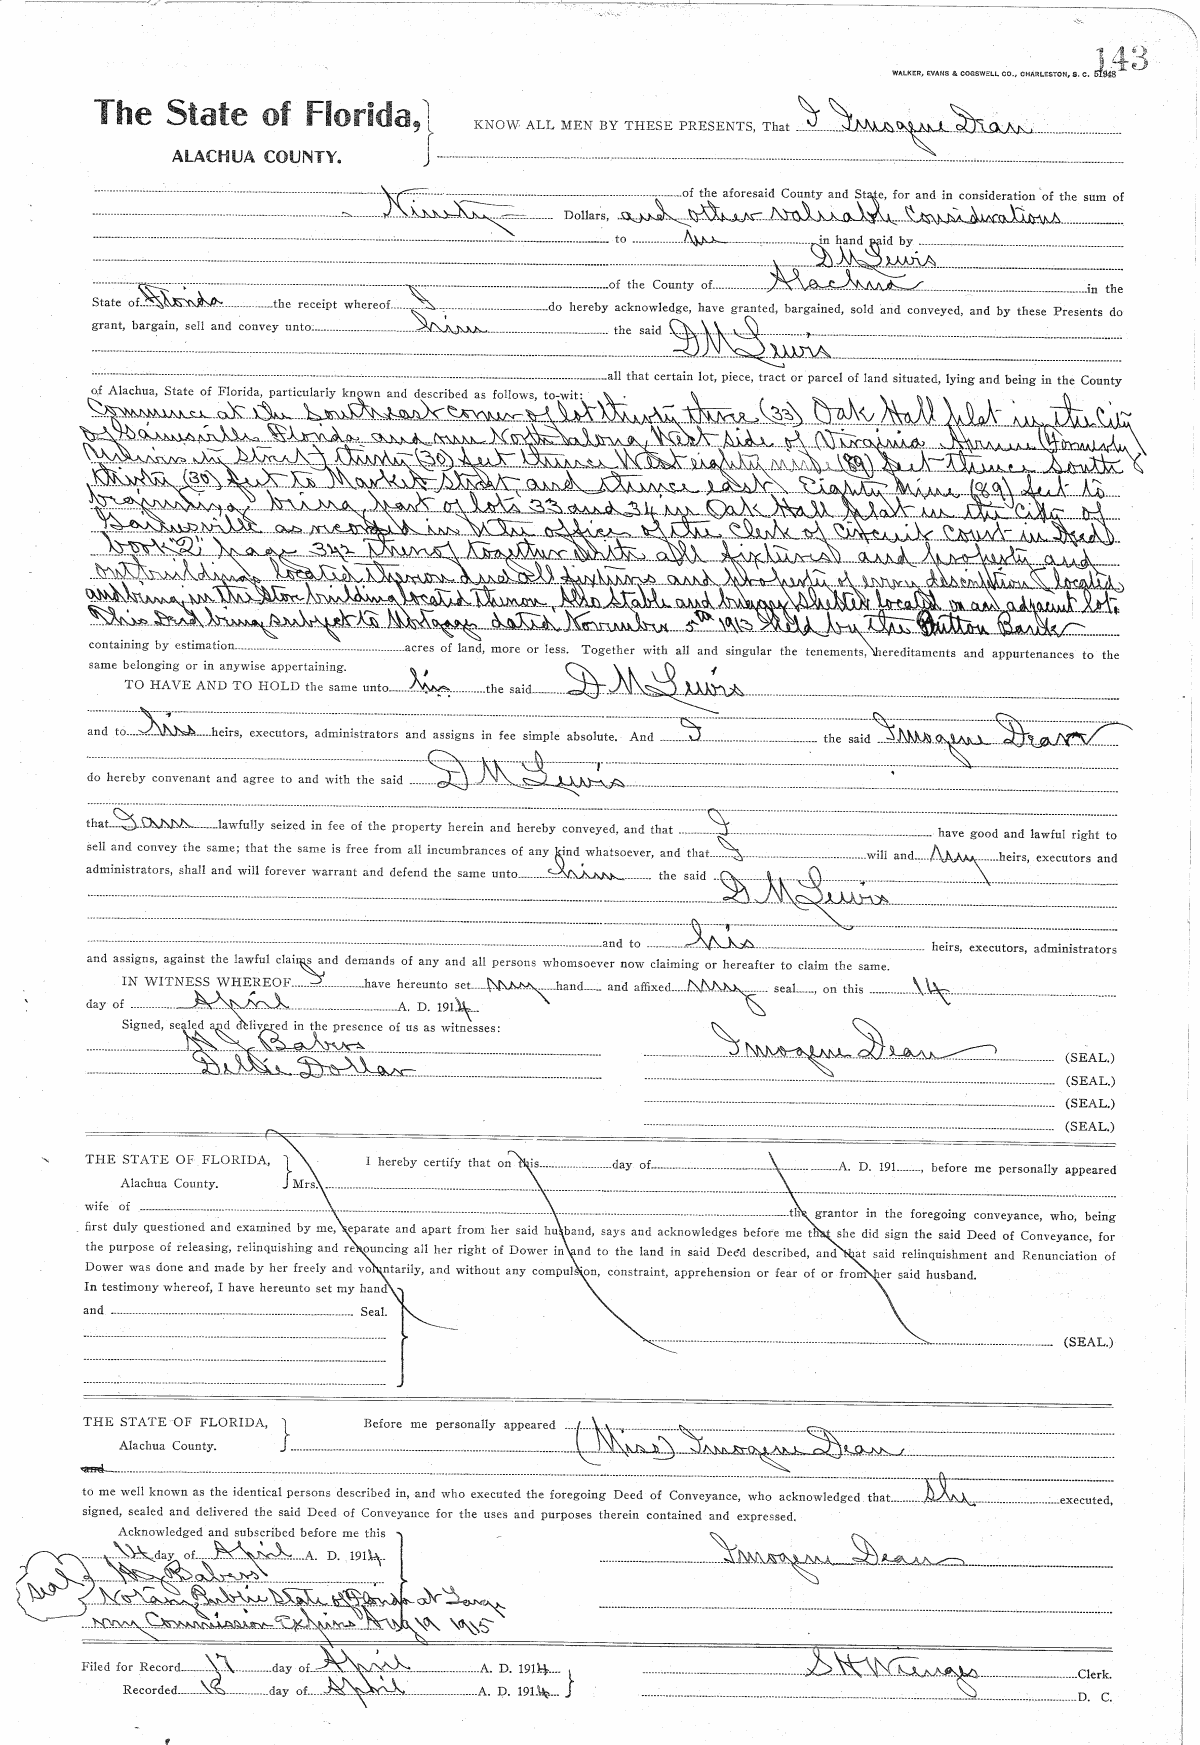 143
WALKER, EVANS & COGSWELL CO., CHARLESTON, S. C. 51948
The State of Florida,
ALACHUA COUNTY.
KNOW ALL MEN BY THESE PRESENTS, That I Imogene Dean
of the aforesaid County and State, for and in consideration of the sum of
Ninety Dollars, and other valuable considerations
to me in hand paid by
D M Lewis
of the County of Alachua in the
State of Florida the receipt whereof I do hereby acknowledge, have granted, bargained, sold and conveyed, and by these Presents do
grant, bargain, sell and convey unto him the said D M Lewis
all that certain lot, piece, tract or parcel of land situated, lying and being in the County
of Alachua, State of Florida, particularly known and described as follows, to-wit:
Commence at the Southeast corner of lot thirty three (33) Oak Hall plat in the City
of Gainesville Florida and run North along West side of Virginia Avenue (formerly
University Street) thirty (30) feet thence West eighty nine (89) feet thence South
thirty (30) feet to Market Street and thence east Eighty Nine (89) feet to
beginning being part of lots 33 and 34 in Oak Hall plat in the City of
Gainesville as recorded in the office of the Clerk of Circuit Court in Deed
book "2" page 342 thereof together with all fixtures and property and
outbuildings located thereon and all fixtures and property of every description located
and being in the Store building located thereon, Also Stable and buggy Shelter located on an adjacent lot.
This Deed being subject to Mortgage dated November 5th 1913 held by the Dutton Bank
containing by estimation acres of land, more or less. Together with all and singular the tenements, hereditaments and appurtenances to the
same belonging or in anywise appertaining.
TO HAVE AND TO HOLD the same unto him the said D M Lewis
and to his heirs, executors, administrators and assigns in fee simple absolute. And I the said Imogene Dean
do hereby convenant and agree to and with the said D M Lewis
that I am lawfully seized in fee of the property herein and hereby conveyed, and that I have good and lawful right to
sell and convey the same; that the same is free from all incumbrances of any kind whatsoever, and that I will and my heirs, executors and
administrators, shall and will forever warrant and defend the same unto him the said D M Lewis
and to his heirs, executors, administrators
and assigns, against the lawful claims and demands of any and all persons whomsoever now claiming or hereafter to claim the same.
IN WITNESS WHEREOF I have hereunto set my hand and affixed my seal, on this 14
day of April A. D. 1914
Signed, sealed and delivered in the presence of us as witnesses:
Babers
Dellie Dollar
Imogene Dean (SEAL.)
(SEAL.)
(SEAL.)
(SEAL.)
THE STATE OF FLORIDA,
Alachua County.
I hereby certify that on this day of A. D. 191 , before me personally appeared
Mrs.
wife of the grantor in the foregoing conveyance, who, being
first duly questioned and examined by me, separate and apart from her said husband, says and acknowledges before me that she did sign the said Deed of Conveyance, for
the purpose of releasing, relinquishing and renouncing all her right of Dower in and to the land in said Deed described, and that said relinquishment and Renunciation of
Dower was done and made by her freely and voluntarily, and without any compulsion, constraint, apprehension or fear of or from her said husband.
In testimony whereof, I have hereunto set my hand
and Seal.
(SEAL.)
THE STATE OF FLORIDA,
Alachua County.
Before me personally appeared (Miss) Imogene Dean
and
to me well known as the identical persons described in, and who executed the foregoing Deed of Conveyance, who acknowledged that she executed,
signed, sealed and delivered the said Deed of Conveyance for the uses and purposes therein contained and expressed.
Acknowledged and subscribed before me this
14 day of April A. D. 1914.
Imogene Dean
Babers
seal
Notary Public State of Florida at Large
my Commission Expires Aug 19 1915
Filed for Record 17 day of April A. D. 1914
S H Wienges Clerk.
Recorded 18 day of April A. D. 1914
D. C.